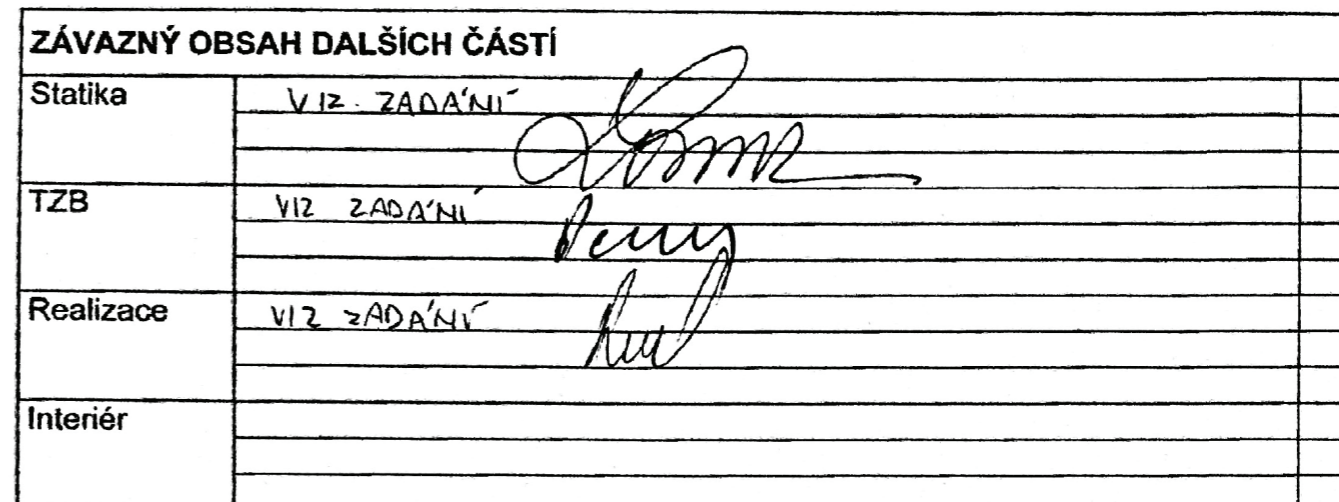 ZÁVAZNÝ OBSAH DALŠÍCH ČÁSTÍ
Statika VIZ. ZADÁNÍ
TZB VIZ ZADÁNÍ
Realizace VIZ ZADÁNÍ
Interiér